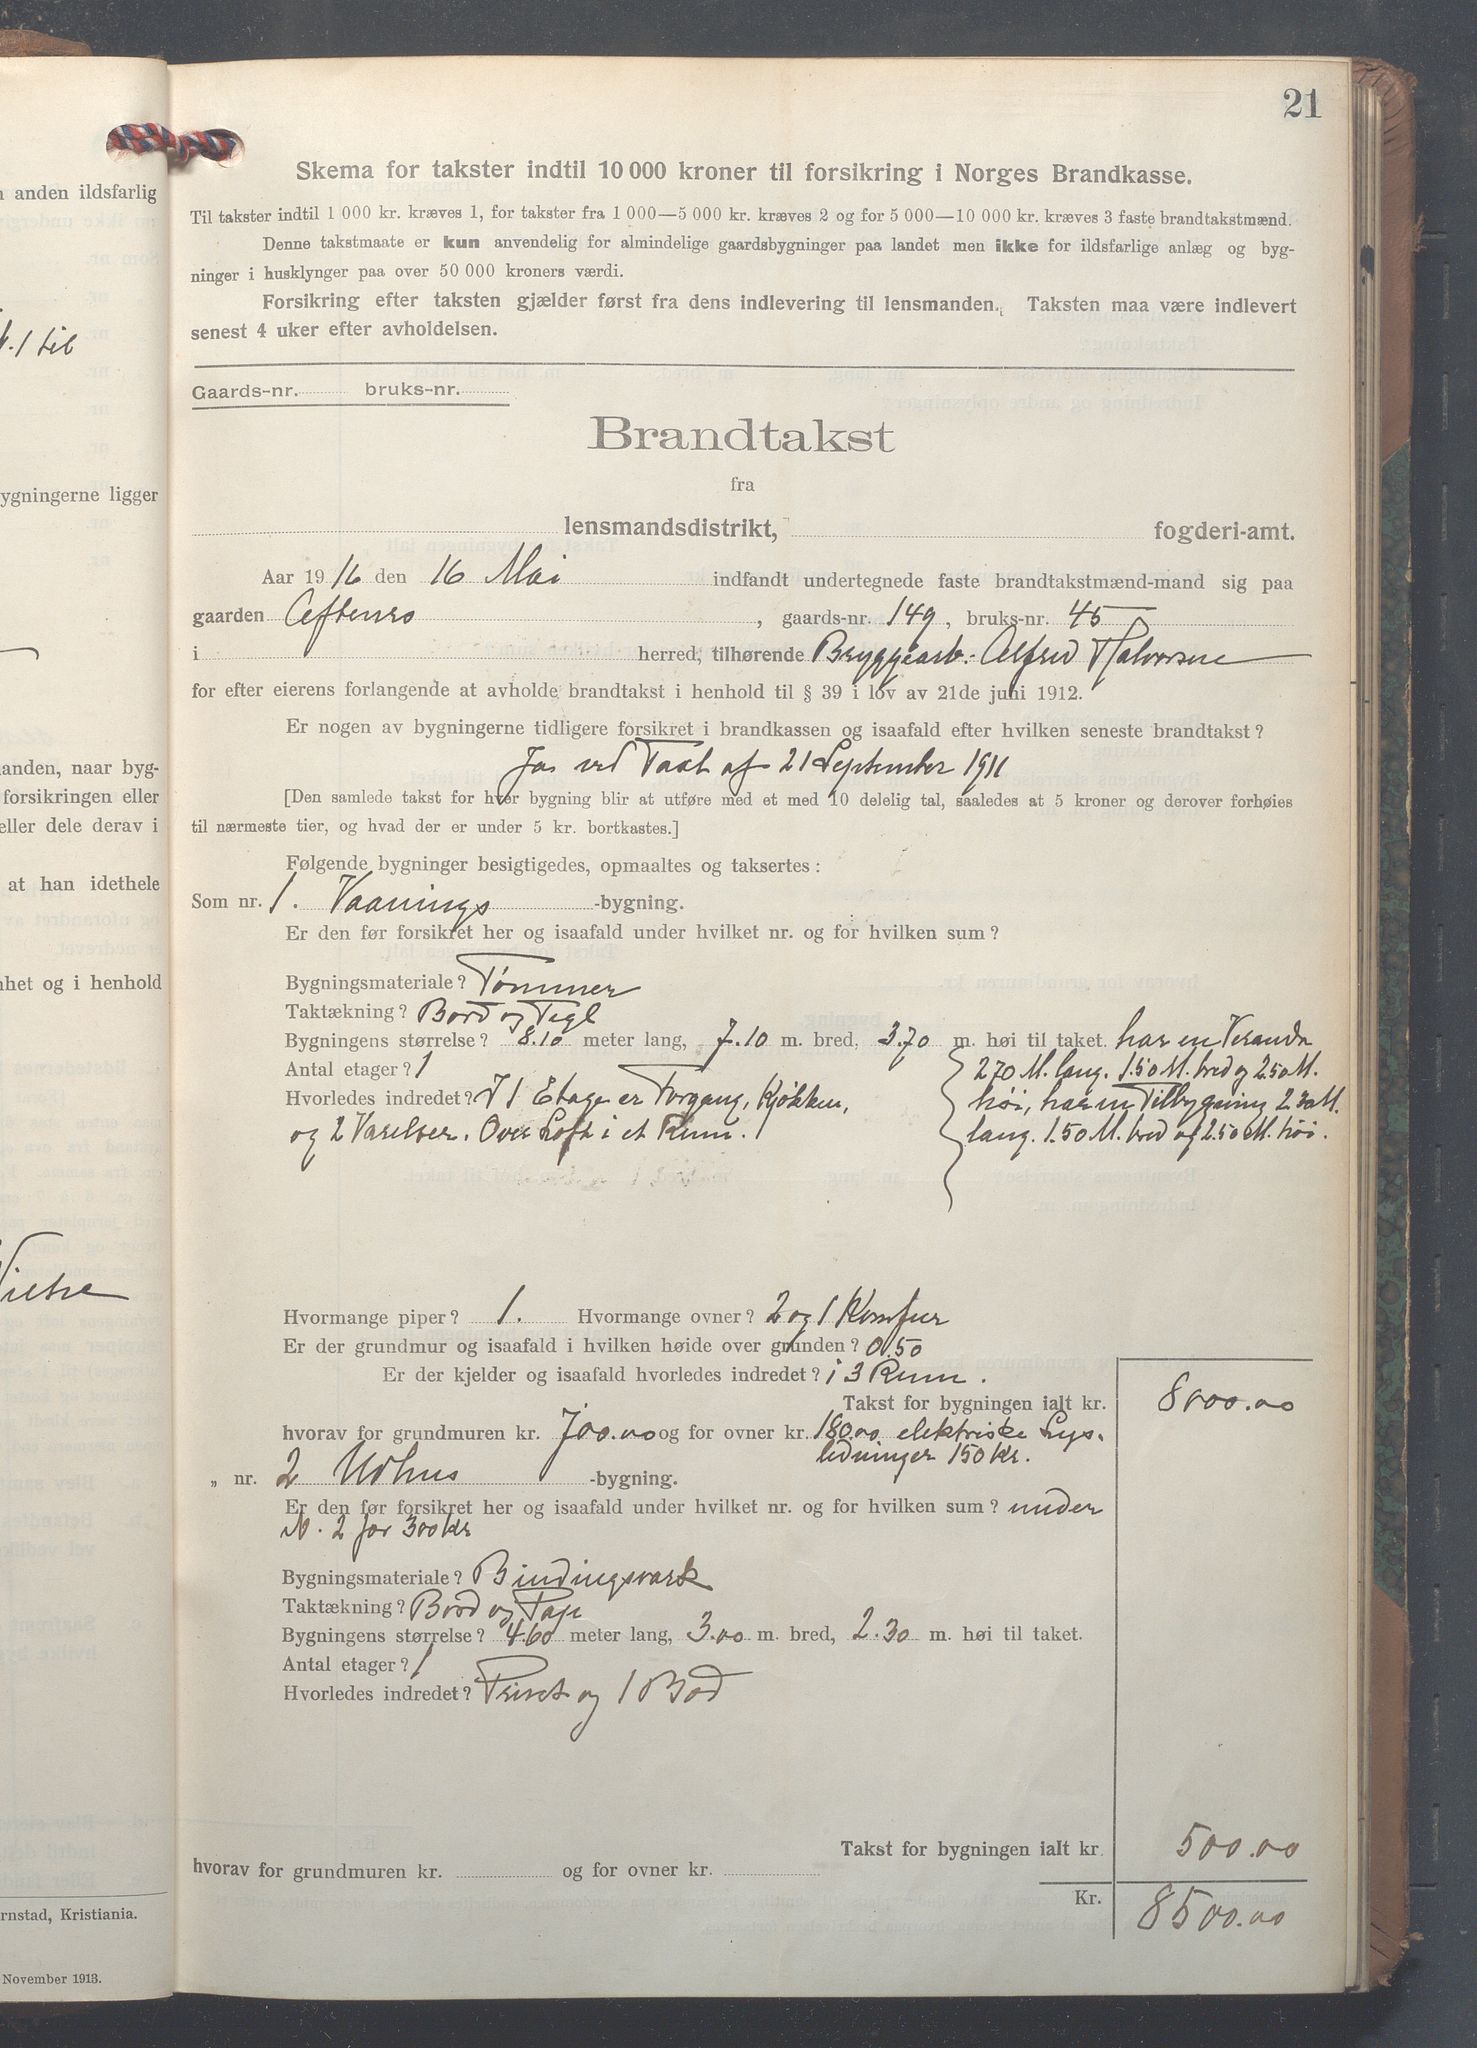 n anden ildsfarlig
.1 til
ygningerne ligger
anden, naar byg-
forsikringen eller
eller dele derav i
at han idethele
nhet og i henhold
rnstad, Kristiania.
November 1913.
21
Skema for takster indtil 10 000 kroner til forsikring i Norges Brandkasse.
Til takster indtil 1 000 kr. kræves 1, for takster fra 1 000—5 000 kr. kræves 2 og for 5 000—10 000 kr. kræves 3 faste brandtakstmænd.
Denne takstmaate er kun anvendelig for almindelige gaardsbygninger paa landet men ikke for ildsfarlige anlæg og byg-
ninger i husklynger paa over 50 000 kroners værdi.
Forsikring efter taksten gjælder først fra dens indlevering til lensmanden. Taksten maa være indlevert
senest 4 uker efter avholdelsen.
Gaards-nr. bruks-nr.
Brandtakst
fra
lensmandsdistrikt, fogderi-amt.
Aar 1916 den 16 Mai indfandt undertegnede faste brandtakstmænd-mand sig paa
gaarden Aftenro, gaards-nr. 149, bruks-nr. 45
i herred, tilhørende Bryggearb. Alfred Halvorsen
for efter eierens forlangende at avholde brandtakst i henhold til § 39 i lov av 21de juni 1912.
Er nogen av bygningerne tidligere forsikret i brandkassen og isaafald efter hvilken seneste brandtakst?
Ja ved Taxt af 21 September 1911
[Den samlede takst for hver bygning blir at utføre med et med 10 delelig tal, saaledes at 5 kroner og derover forhøies
til nærmeste tier, og hvad der er under 5 kr. bortkastes.]
Følgende bygninger besigtigedes, opmaaltes og taksertes:
Som nr. 1. Vaanings -bygning.
Er den før forsikret her og isaafald under hvilket nr. og for hvilken sum?
Bygningsmateriale? Tømmer
Taktækning? Bord og Tegl
Bygningens størrelse? 8.10 meter lang, 7.10 m. bred, 3.70 m. høi til taket. har en Veranda
Antal etager? 1 2 70 M. lang. 1.50 M. bred og 2.50 M.
Hvorledes indredet? I 1 Etage er Forgang, Kjøkken, høi, har en Tilbygning 2.30 M.
og 2 Værelser. Over Loft i et Rum. lang. 1.50 M. bred og 2.50 M. høi.
Hvormange piper? 1. Hvormange ovner? 2 og 1 Komfur
Er der grundmur og isaafald i hvilken høide over grunden? 0.50
Er der kjelder og isaafald hvorledes indredet? i 3 Rum.
Takst for bygningen ialt kr. 8000.00
hvorav for grundmuren kr. 700.00 og for ovner kr. 180.00 elektriske Lys-
ledninger 150 Kr.
„ nr. 2 Udhus -bygning.
Er den før forsikret her og isaafald under hvilket nr. og for hvilken sum? under
N. 2 for 300 Kr
Bygningsmateriale? Bindingsværk
Taktækning? Bord og Pap
Bygningens størrelse? 4.60 meter lang, 3.00 m. bred, 2.30 m. høi til taket.
Antal etager? 1
Hvorledes indredet? Privet og 1 Bod
Takst for bygningen ialt kr. 500.00
hvorav for grundmuren kr. og for ovner kr.
Kr. 8500.00